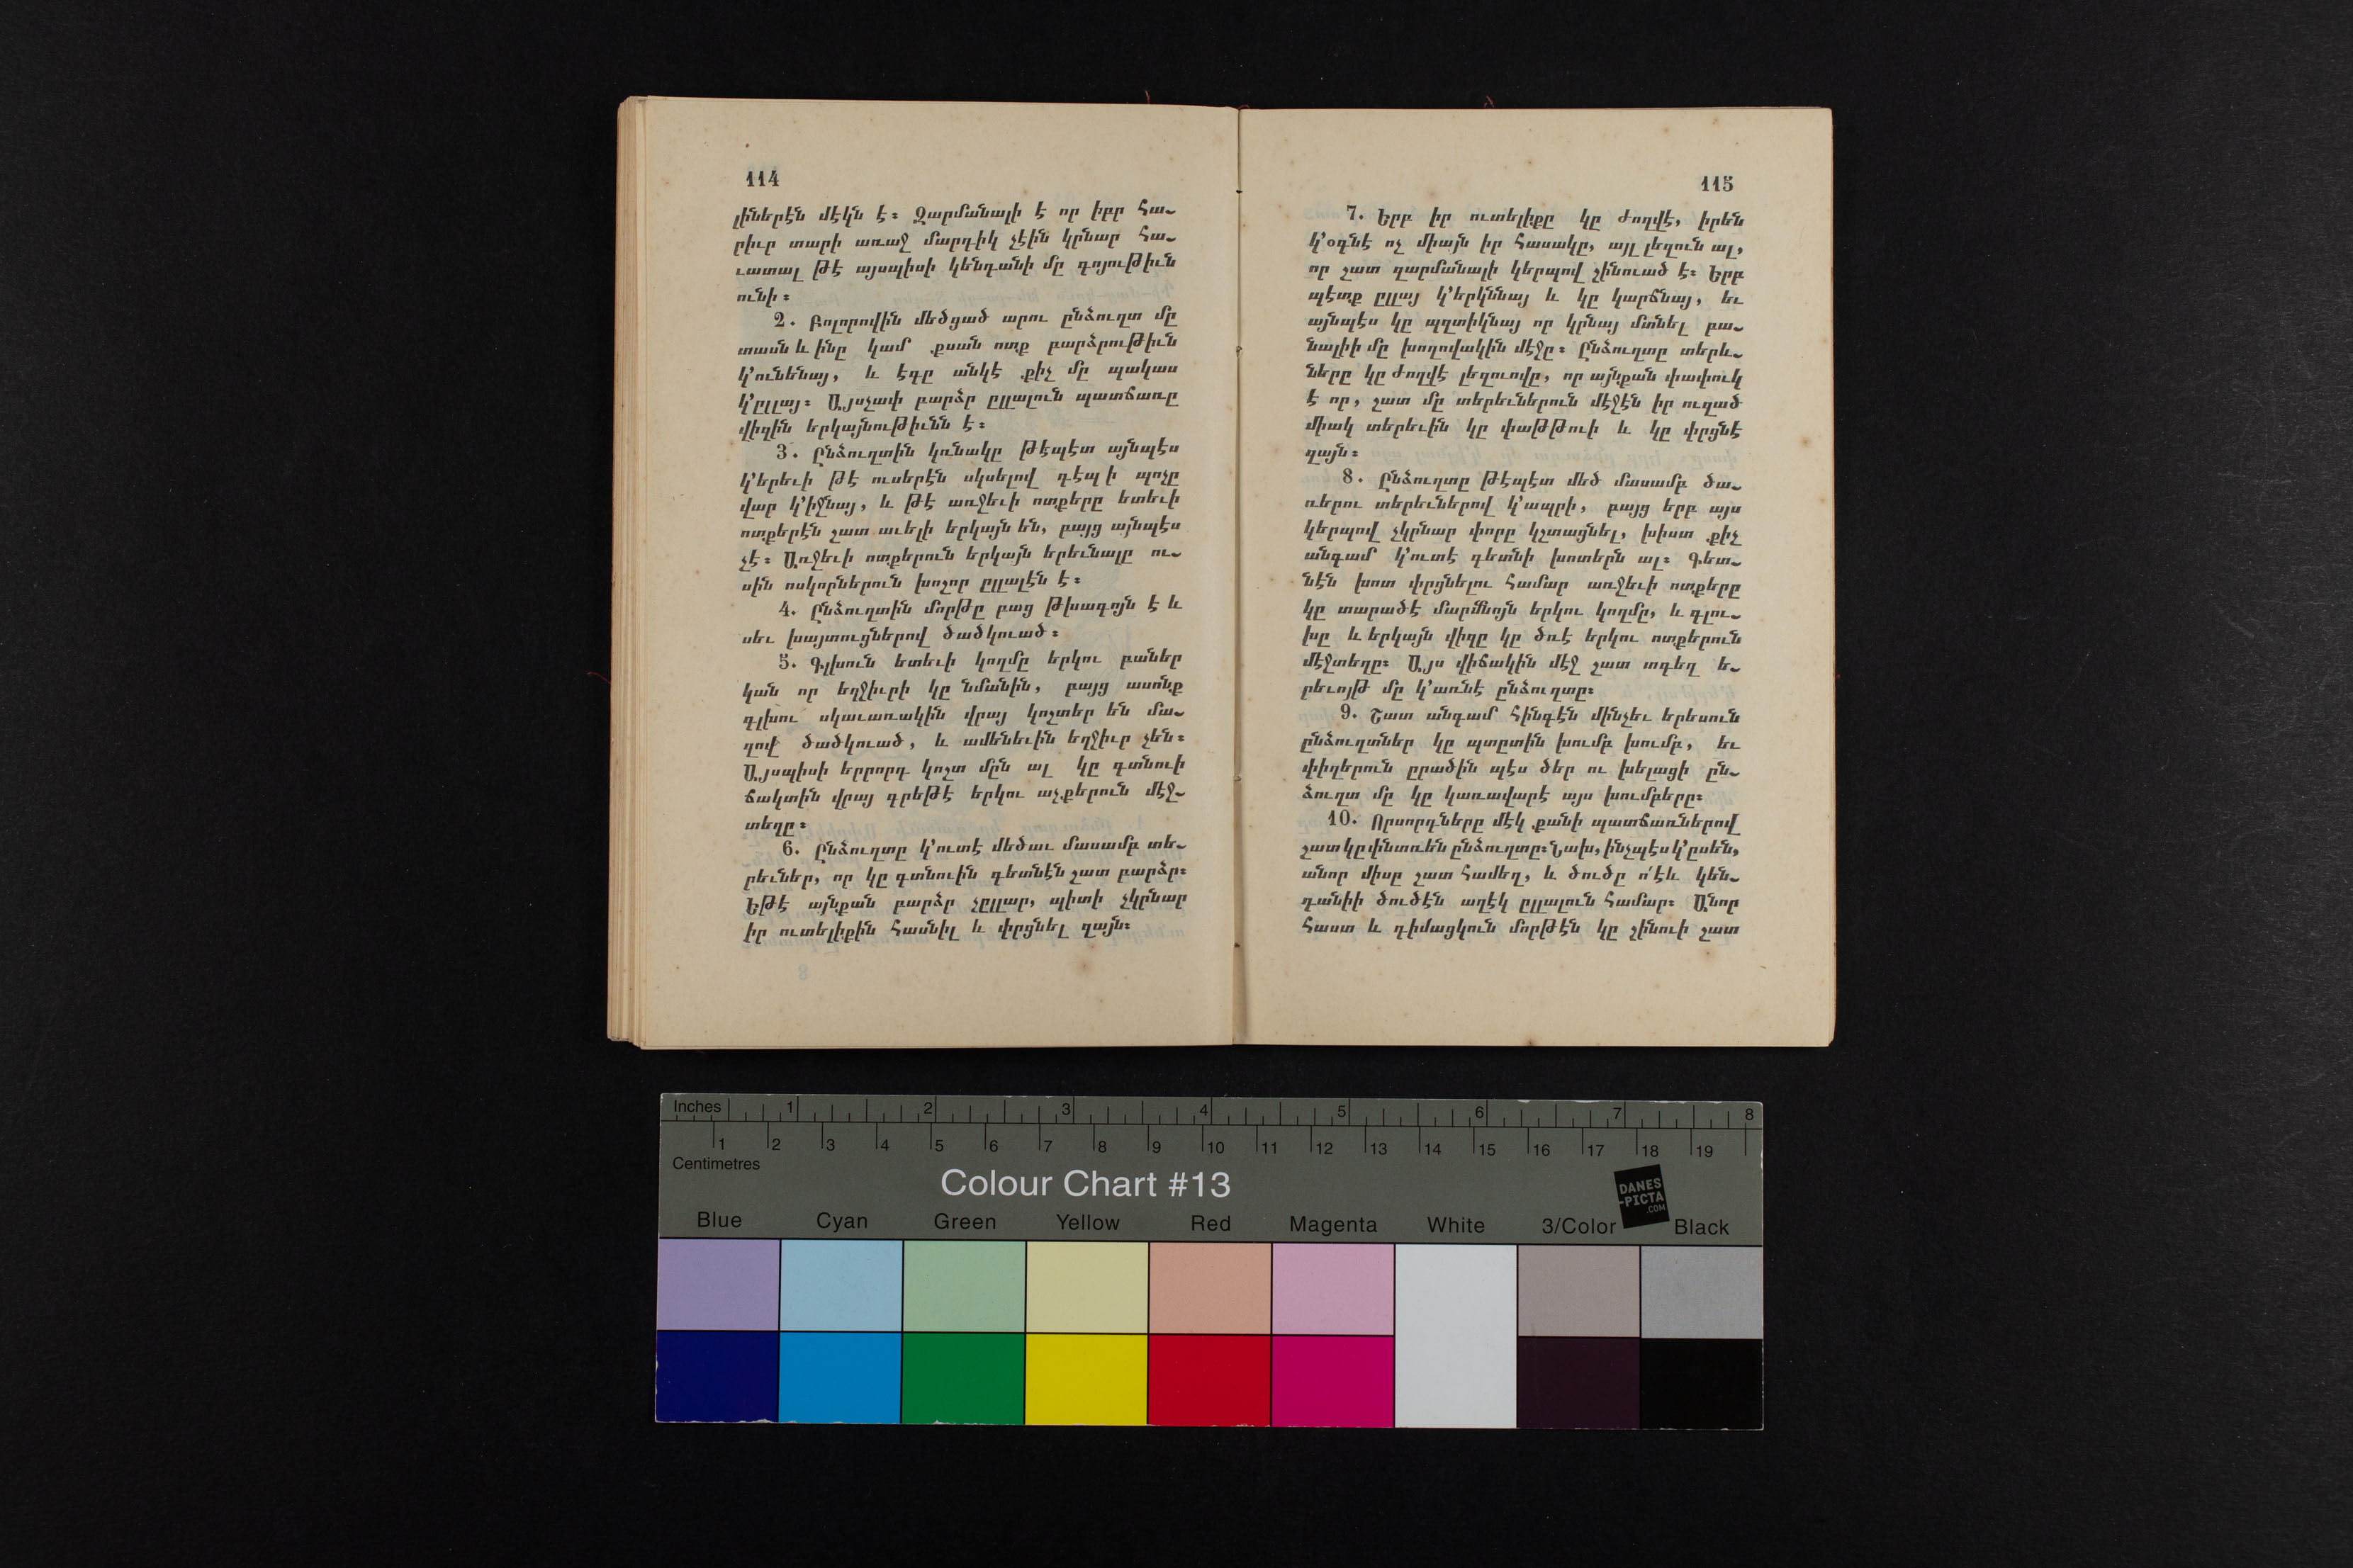 114
լիներէն մէկն է։ Զարմանալի է որ իբր հա֊
րիւր տարի առաջ մարդիկ չէին կրնար հա֊
ւատալ թէ այսպիսի կենդանի մը գոյութիւն
ունի։
2. Բոլորովին մեծցած արու ընձուղտ մը
տասն և ինը կամ քսան ոտք բարձրութիւն
կ՚ունենայ, և էգը անկէ քիչ մը պակաս
կ՚ըլլայ։ Այսչափ բարձր ըլլալուն պատճառը
վիզին երկայնութիւնն է։
3. Ընձուղտին կռնակը թէպէտ այնպէս
կ՚երեւի թէ ուսերէն սկսելով դէպ ի պոչը
վար կ՚իջնայ, և թէ առջեւի ոտքերը ետեւի
ոտքերէն շատ աւելի երկայն են, բայց այնպէս
չէ։ Առջեւի ոտքերուն երկայն երեւնալը ու֊
սին ոսկորներուն խոշոր ըլլալէն է։
4. Ընձուղտին մորթը բաց թխագոյն է և
սեւ խայտուցներով ծածկուած։
5. Գլխուն ետեւի կողմը երկու բաներ
կան որ եղջիւրի կը նմանին, բայց ասոնք
գլխու սկաւառակին վրայ կոշտեր են մա֊
զով ծածկուած, և ամենեւին եղջիւր չեն։
Այսպիսի երրորդ կոշտ մըն ալ կը գտնուի
ճակտին վրայ գրեթէ երկու աչքերուն մէջ֊
տեղը։
6. Ընձուղտը կ՚ուտէ մեծաւ մասամբ տե֊
րեւներ, որ կը գտնուին գետնէն շատ բարձր։
Եթէ այնքան բարձր չըլլար, պիտի չկրնար
իր ուտելիքին հասնիլ և փրցնել զայն։
115
7. Երբ իր ուտելիքը կը ժողվէ, իրեն
կ՚օգնէ ոչ միայն իր հասակը, այլ լեզուն ալ,
որ շատ զարմանալի կերպով շինուած է։ Երբ
պէտք ըլլայ կ՚երկննայ և կը կարճնայ, եւ
այնպէս կը պզտիկնայ որ կրնայ մտնել բա֊
նալիի մը խողովակին մէջը։ Ընձուղտը տերև֊
ները կը ժողվէ լեզուովը, որ այնքան փափուկ
է որ, շատ մը տերեւներուն մէջէն իր ուզած
միակ տերեւին կը փաթթուի և կը փրցնէ
զայն։
8. Ընձուղտը թէպէտ մեծ մասամբ ծա֊
ռերու տերեւներով կ՚ապրի, բայց երբ այս
կերպով չկրնար փորը կշտացնել, խիստ քիչ
անգամ կ՚ուտէ գետնի խոտերն ալ։ Գետ֊
նէն խոտ փրցնելու համար առջեւի ոտքերը
կը տարածէ մարմնոյն երկու կողմը, և գլու֊
խը և երկայն վիզը կը ծռէ երկու ոտքերուն
մէջտեղը։ Այս վիճակին մէջ շատ տգեղ ե֊
րեւոյթ մը կ՚առնէ ընձուղտը։
9. Շատ անգամ հինգէն մինչեւ երեսուն
ընձուղտներ կը պտըտին խումբ խումբ, եւ
փիղերուն ըրածին պէս ծեր ու խելացի ըն֊
ձուղտ մը կը կառավարէ այս խումբերը։
10. Որսորդները մէկ քանի պատճառներով
շատ կը փնտռեն ընձուղտը։ Նախ, ինչպէս կ՚ըսեն,
անոր միսը շատ համեղ, և ծուծը ո՛ևէ կեն֊
դանիի ծուծէն աղէկ ըլլալուն համար։ Անոր
հաստ և դիմացկուն մորթէն կը շինուի շատ
Inches 1 2 3 4 5 6 7 8
1 2 3 4 5 6 7 8 9 10 11 12 13 14 15 16 17 18 19
Centimetres
Colour Chart #13
DANES
-PICTA
.COM
Blue Cyan Green Yellow Red Magenta White 3/Color Black